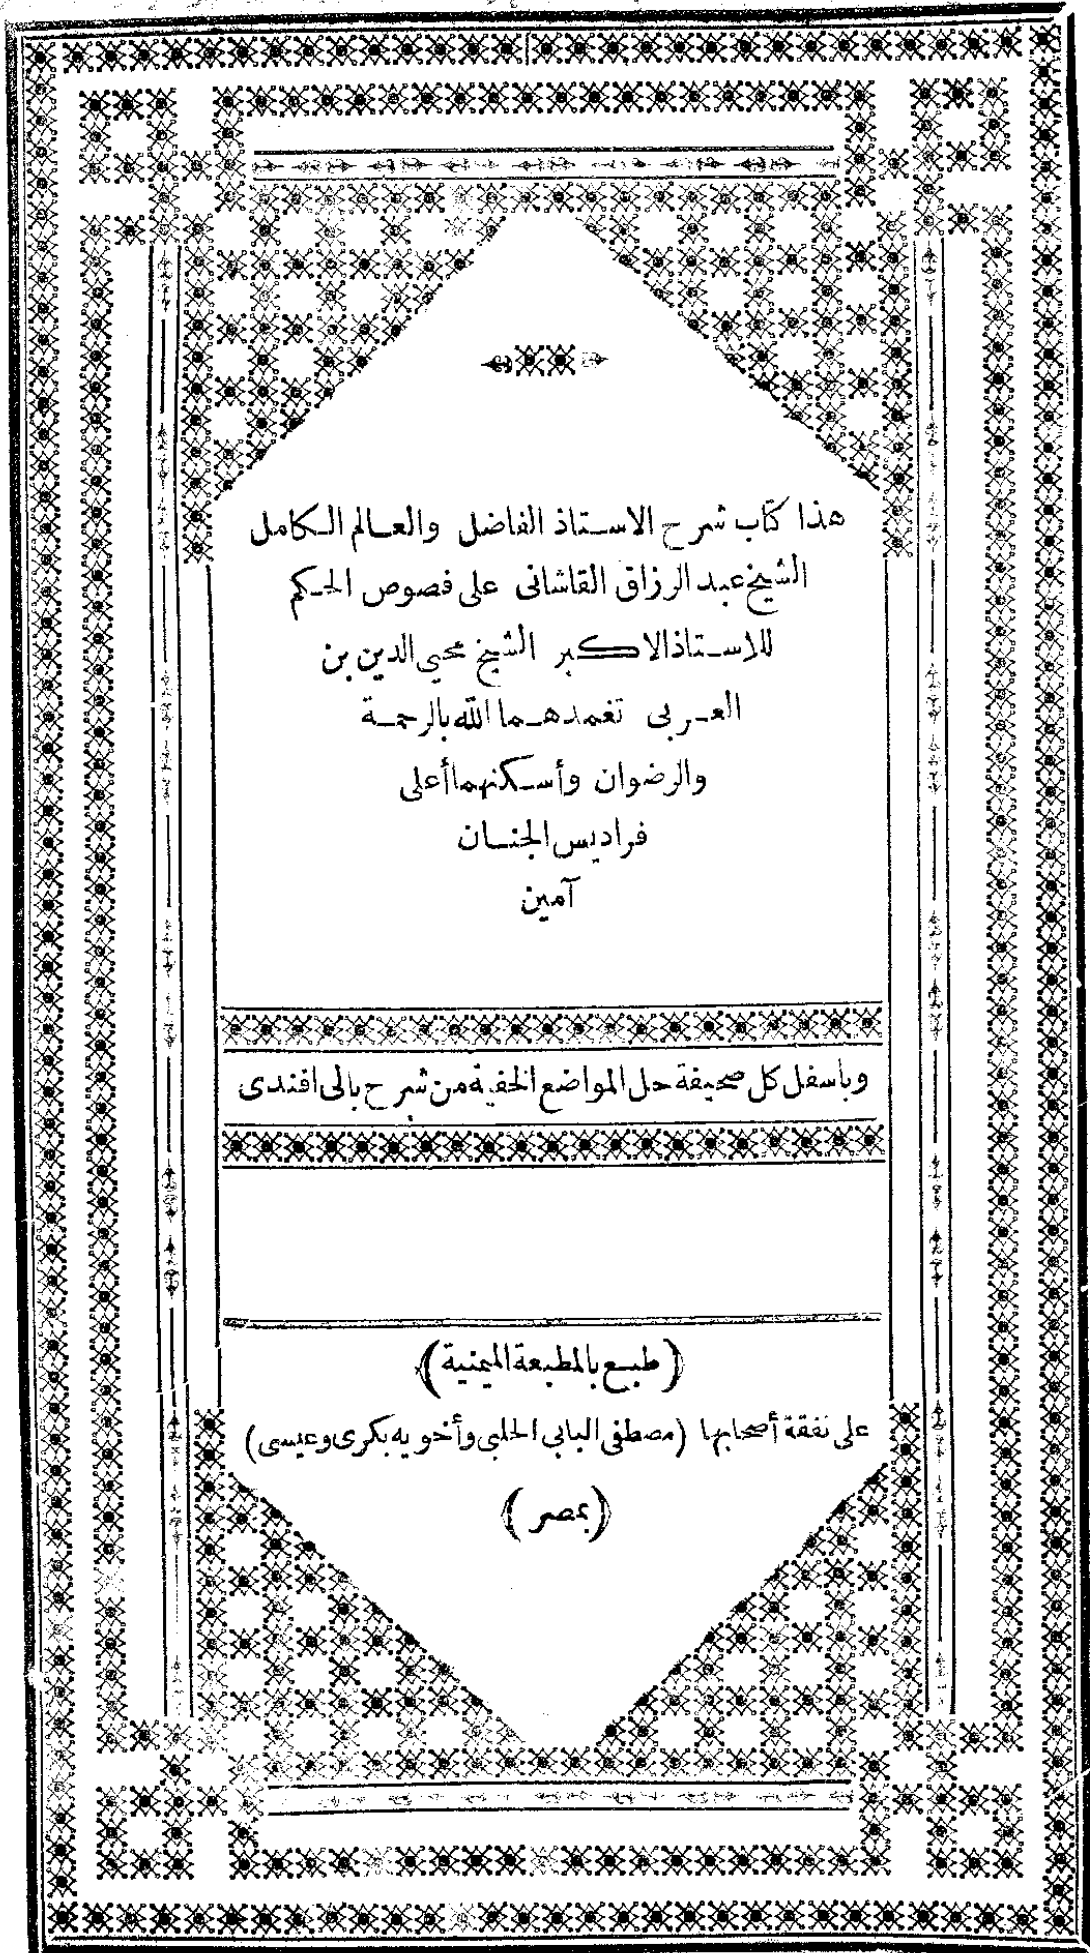 هذا كتاب شرح الاستاذ الفاضل والعالم الكامل
الشيخ عبد الرزاق القاشانى على فصوص الحكم
للاستاذ الاكبر الشيخ محيى الدين بن
العربى تغمدهما الله بالرحمة
والرضوان وأسكنهما أعلى
فراديس الجنان
آمين
وباسفل كل صحيفة حل المواضع الخفية من شرح بالى افندى
(طبع بالمطبعة الميمنية)
على نفقة أصحابها (مصطفى البابى الحلبى وأخويه بكرى وعيسى)
(بمصر)